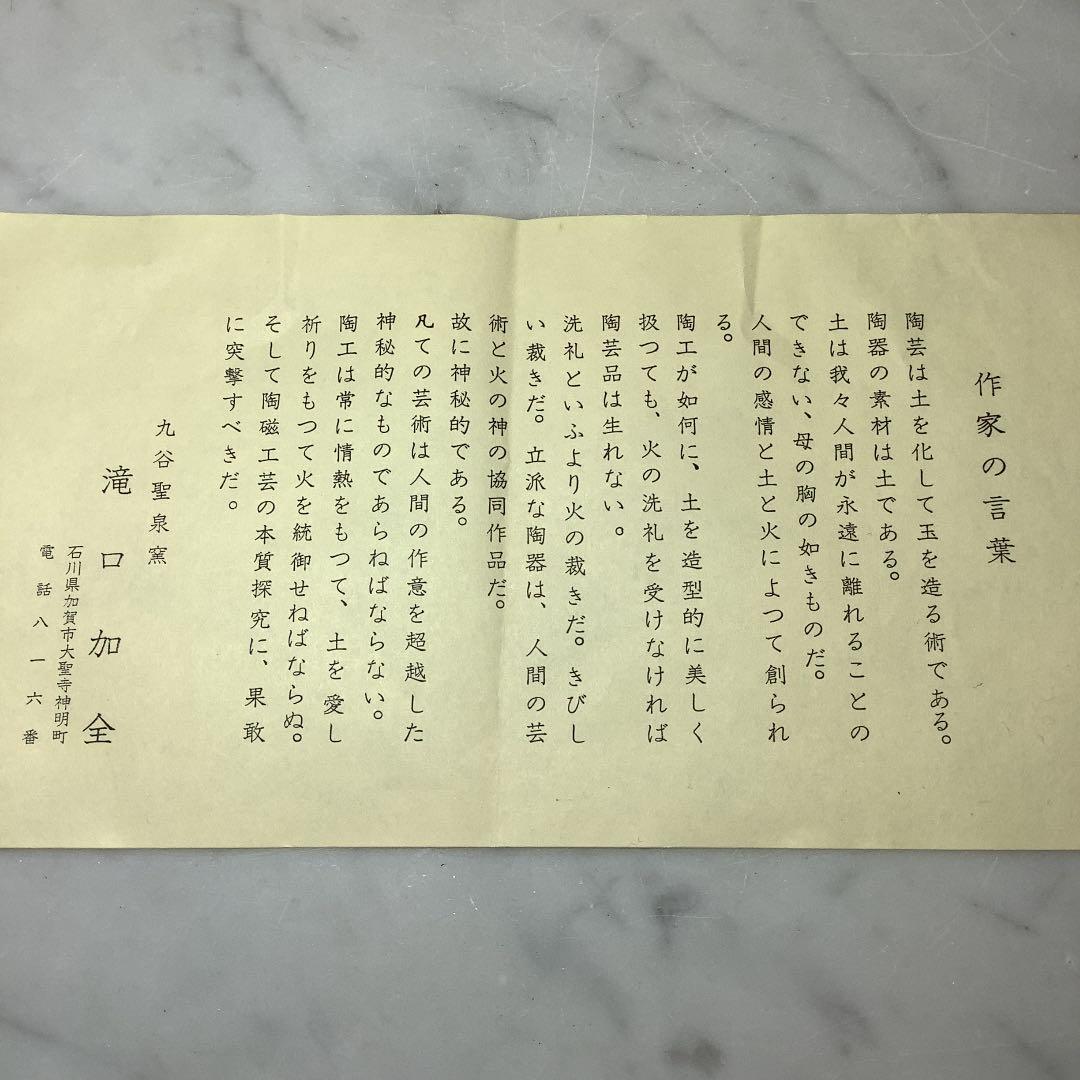 作家の言葉
陶芸は土を化して玉を造る術である。
陶器の素材は土である。
土は我々人間が永遠に離れることの
できない、母の胸の如きものだ。
人間の感情と土と火によつて創られ
る。
陶工が如何に、土を造型的に美しく
扱つても、火の洗礼を受けなければ
陶芸品は生れない。
洗礼といふより火の裁きだ。きびし
い裁きだ。立派な陶器は、人間の芸
術と火の神の協同作品だ。
故に神秘的である。
凡ての芸術は人間の作意を超越した
神秘的なものであらねばならない。
陶工は常に情熱をもつて、土を愛し
祈りをもつて火を統御せねばならぬ。
そして陶磁工芸の本質探究に、果敢
に突撃すべきだ。
九谷聖泉窯
滝口加全
石川県加賀市大聖寺神明町
電話八一六番